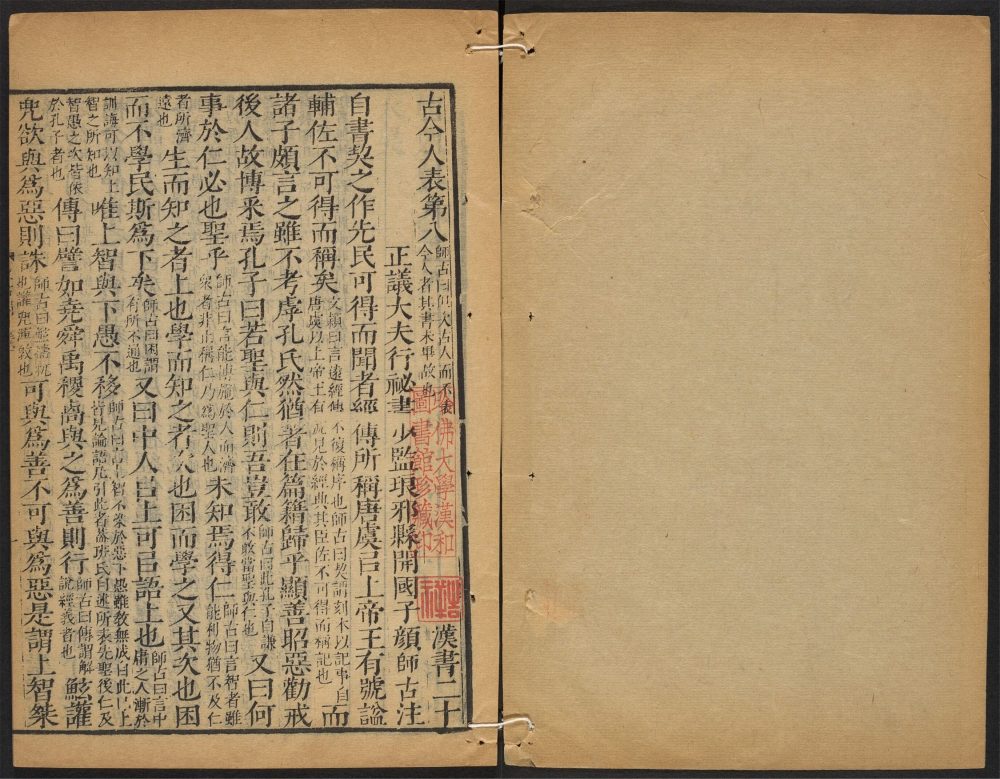 古今人表第八師古曰但次古人而不表今人者其書未畢故也 漢書二十
正議大夫行祕書少監琅邪縣開國子顏師古注
自書契之作先民可得而聞者經傳所稱唐虞㠯上帝王有號謚
輔佐不可得而稱矣文穎曰言遠經傳不復稱序也師古曰契謂刻木以記事自唐虞以上帝王有號見於經典其臣佐不可得而稱記也而
諸子頗言之雖不考虖孔氏然猶著在篇籍歸乎顯善昭惡勸戒
後人故博采焉孔子曰若聖與仁則吾豈敢師古曰此孔子自謙不敢當聖與仁也又曰何
事於仁必也聖乎師古曰言能博施於人而濟衆者非止稱仁乃爲聖人也未知焉得仁師古曰言智者雖能利物猶不及仁
者所濟遠也生而知之者上也學而知之者次也困而學之又其次也困
而不學民斯爲下矣師古曰困謂有所不通也又曰中人㠯上可㠯語上也師古曰言中庸之人漸於
訓誨可以知上智之所知也唯上智與下愚不移師古曰言上智不染於惡下愚雖教無成自此已上皆見論語凡引此者蓋班氏自述所表先聖後仁及
智愚之次皆依於孔子者也傳曰譬如堯舜禹稷卨與之爲善則行師古曰傳謂解說經義者也鯀讙
兜欲與爲惡則誅師古曰鯀檮杌也讙兜渾敦也可與爲善不可與爲惡是謂上智桀
哈佛大學漢和
圖書館珍藏印